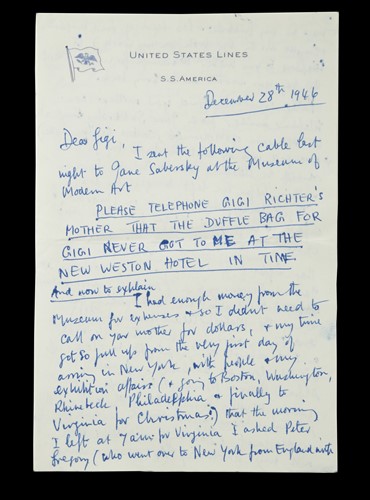 UNITED STATES LINES
S.S. AMERICA
December 28th 1946
Dear Gigi,
I sent the following cable last
night to Jane Sabersky at the Museum of
Modern Art
PLEASE TELEPHONE GIGI RICHTER'S
MOTHER THAT THE DUFFLE BAG FOR
GIGI NEVER GOT TO ME AT THE
NEW WESTON HOTEL IN TIME
And now to explain
I had enough money from the
Museum for expenses & so I didn't need to
call on your mother for dollars, & my time
got so full up from the very first day of
arriving in New York, with people & my
exhibition affairs (& going to Boston, Washington,
Rhinebeck, Philadelphia & finally to
Virginia for Christmas) that the morning
I left at 7 a.m. for Virginia I asked Peter
Gregory (who went over to New York from England with